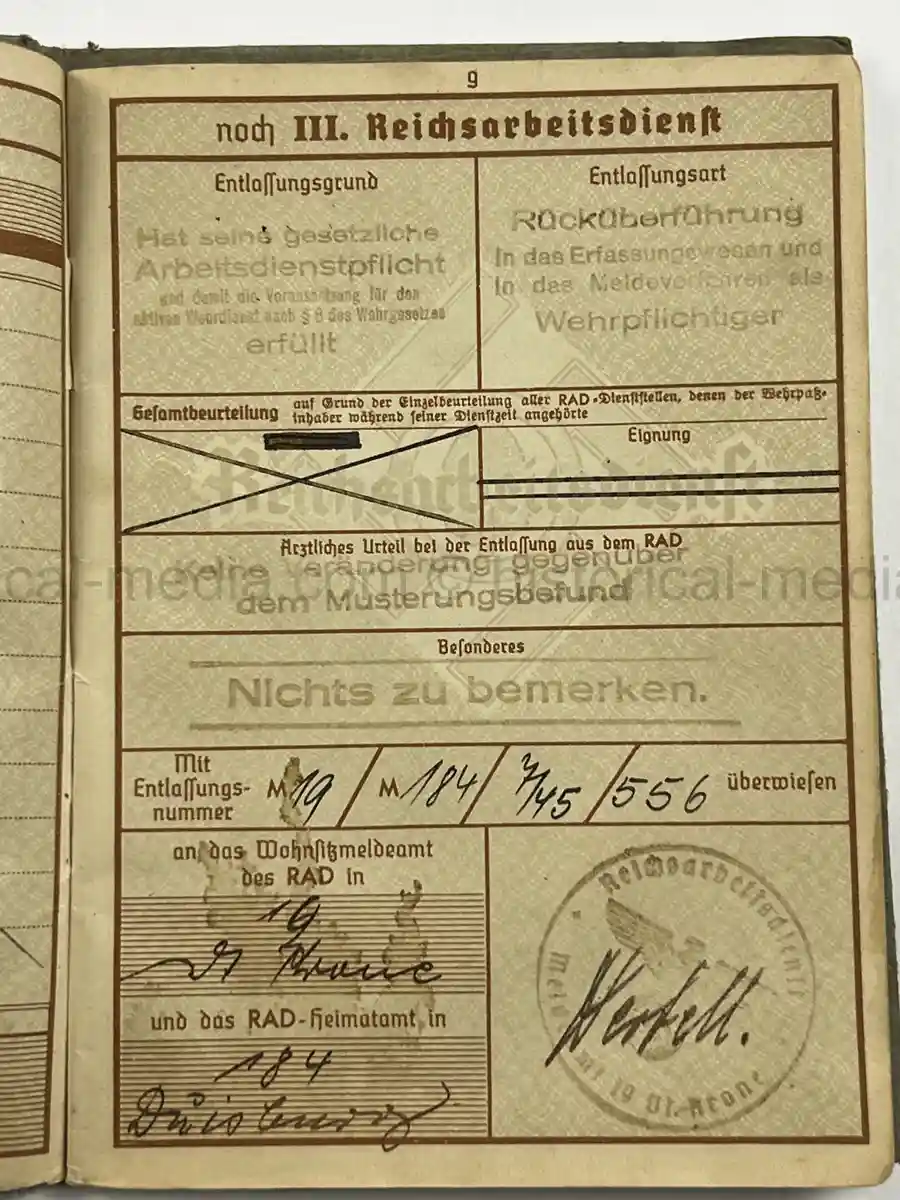 9
noch III. Reichsarbeitsdienst
Entlassungsgrund
Hat seine gesetzliche
Arbeitsdienstpflicht
und damit die Voraussetzung für den
aktiven Wehrdienst nach § 8 des Wehrgesetzes
erfüllt
Entlassungsart
Rücküberführung
in das Erfassungswesen und
in das Meldeverfahren als
Wehrpflichtiger
Gesamtbeurteilung auf Grund der Einzelbeurteilung aller RAD-Dienststellen, denen der Wehrpaß-
inhaber während seiner Dienstzeit angehörte
Eignung
Reichsarbeitsdienst
Ärztliches Urteil bei der Entlassung aus dem RAD
Keine Veränderung gegenüber
dem Musterungsbefund
Besonderes
Nichts zu bemerken.
Mit
Entlassungs-
nummer
M 19 / M 184 / 7/45 / 556 überwiesen
an das Wohnsitzmeldeamt
des RAD in
19
Dt Krone
und das RAD-Heimatamt in
184
Duisburg
Reichsarbeitsdienst
19 Dt. Krone
historical-media.com © historical-media